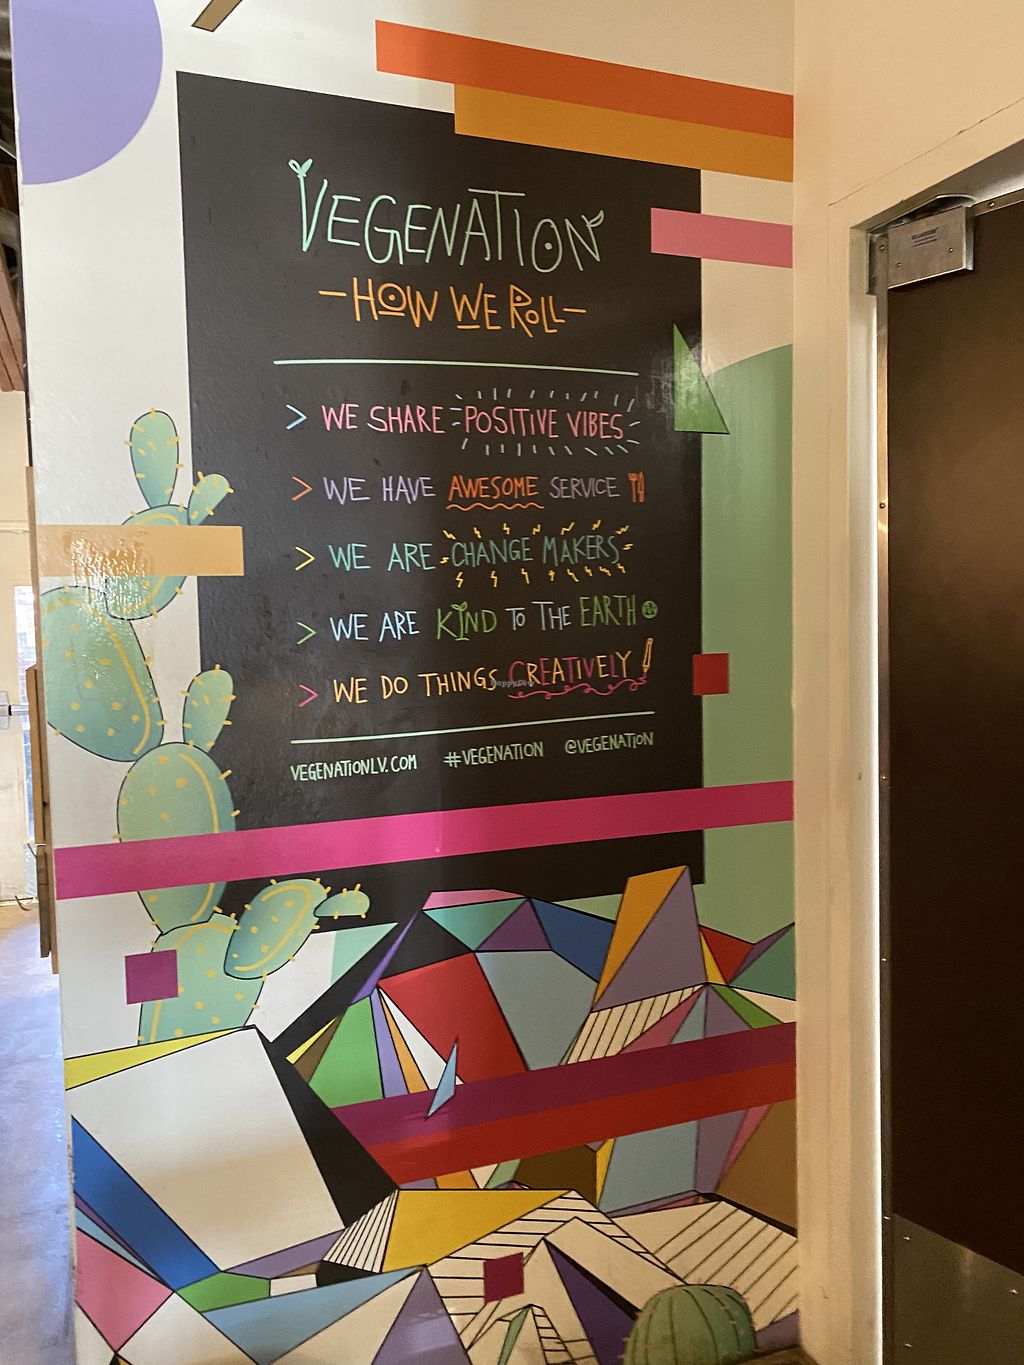 VEGENATION
-HOW WE ROLL-
> WE SHARE POSITIVE VIBES
> WE HAVE AWESOME SERVICE
> WE ARE CHANGE MAKERS
> WE ARE KIND TO THE EARTH
> WE DO THINGS CREATIVELY
HappyCow
VEGENATIONLV.COM #VEGENATION @VEGENATION